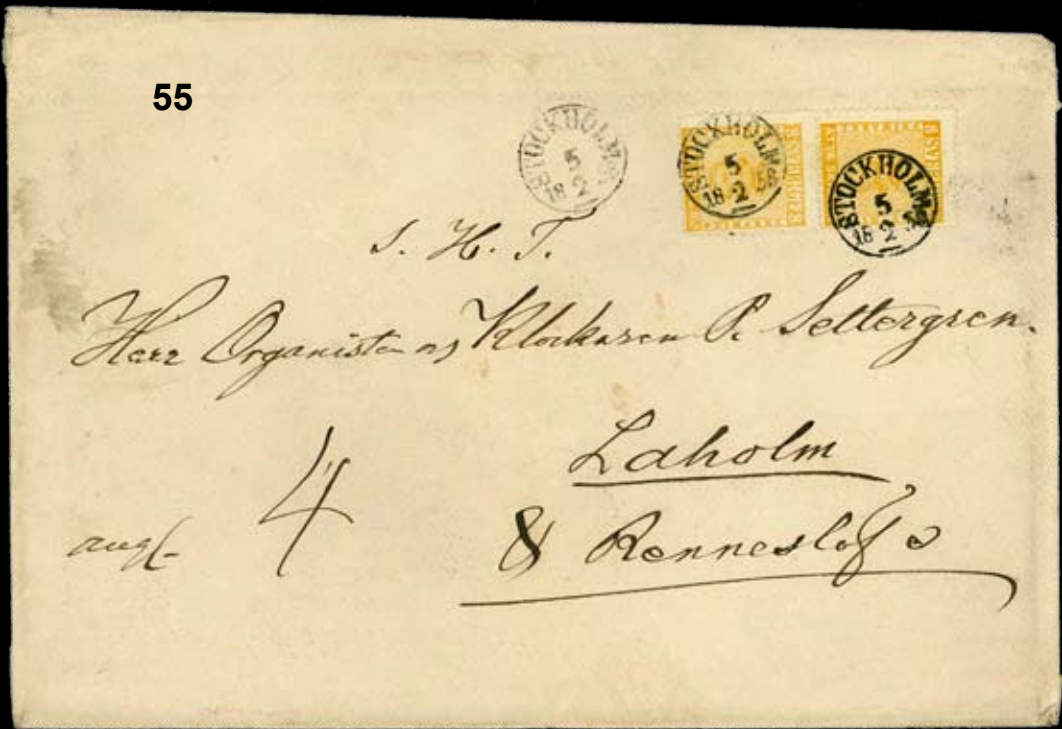 55
STOCKHOLM 5 2 18
STOCKHOLM 5 2 1858
STOCKHOLM 5 2 18
S. H. T.
Herr Organisten og Klockaren P. Settergren.
Laholm
4
& Renneslöf